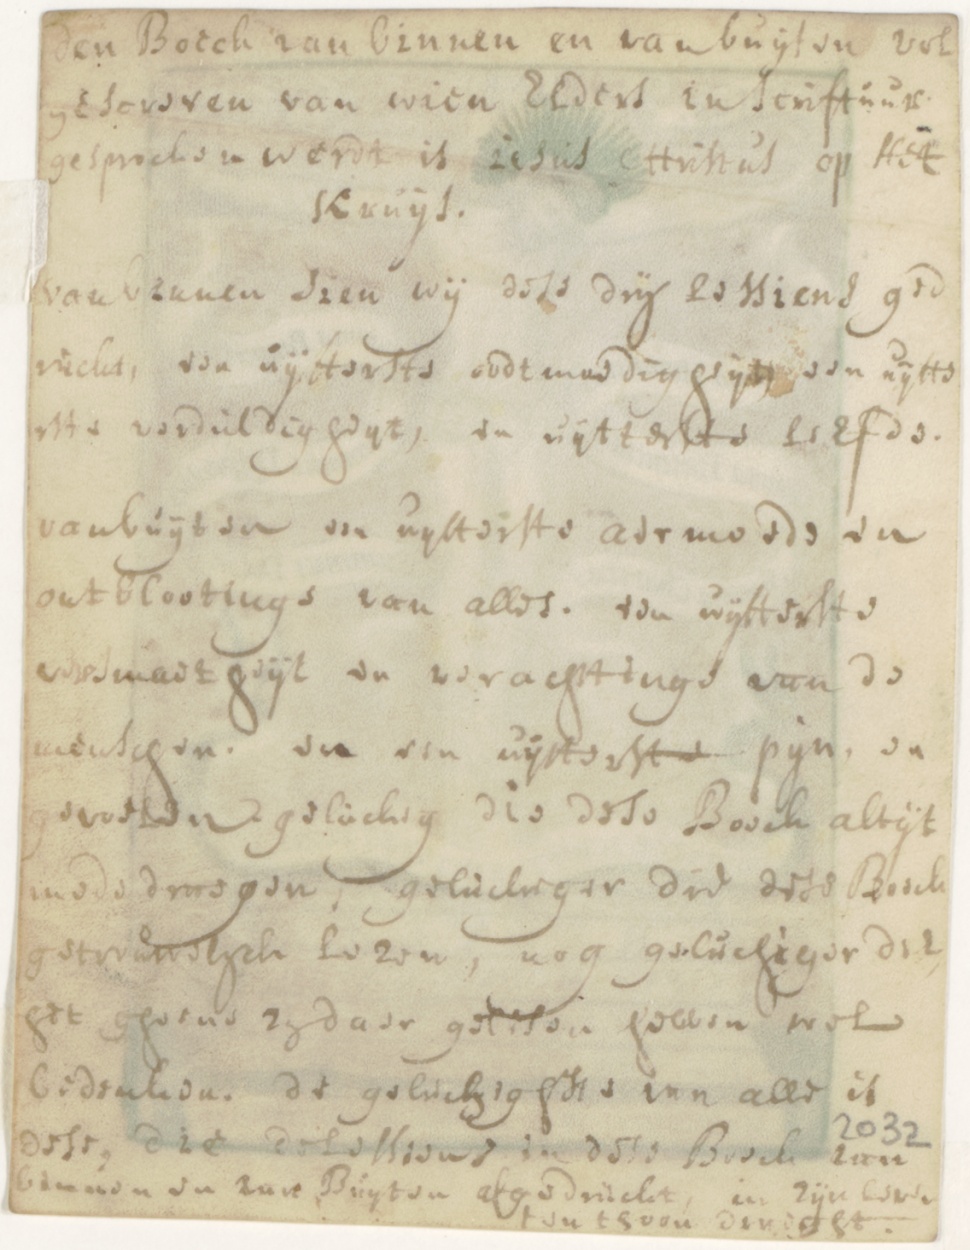 den Boeck van binnen en van buyten vol
geschreven van wien Elders in Scriftuur
gesproken werdt is iesus Christus op Het
Kruys.
van binnen Sien wij dese drij lessiens ged
ruckt, een uijtterste oodtmoedigheyt, een uytte
rste verduldigheyt, en uijtterste liefde.
van buijten een uytterste aermoede en
ontblootinge van alles. een uijtterste
versmaetheijt en verachtinge van de
menschen. en een uijtterste pijn, en
gevoelen. geluckig die dese Boeck altijt
mede draegen, geluckiger die dese Boeck
getrouwelijck lezen, nog geluckiger die
het gheene zij daer gelesen hebben wel
bedencken. de geluckighste van alle is
dese, die de lessiens in dese Boeck van
2032
binnen en van Buyten afgedruckt, in zijn leven
ten thoon draeght.